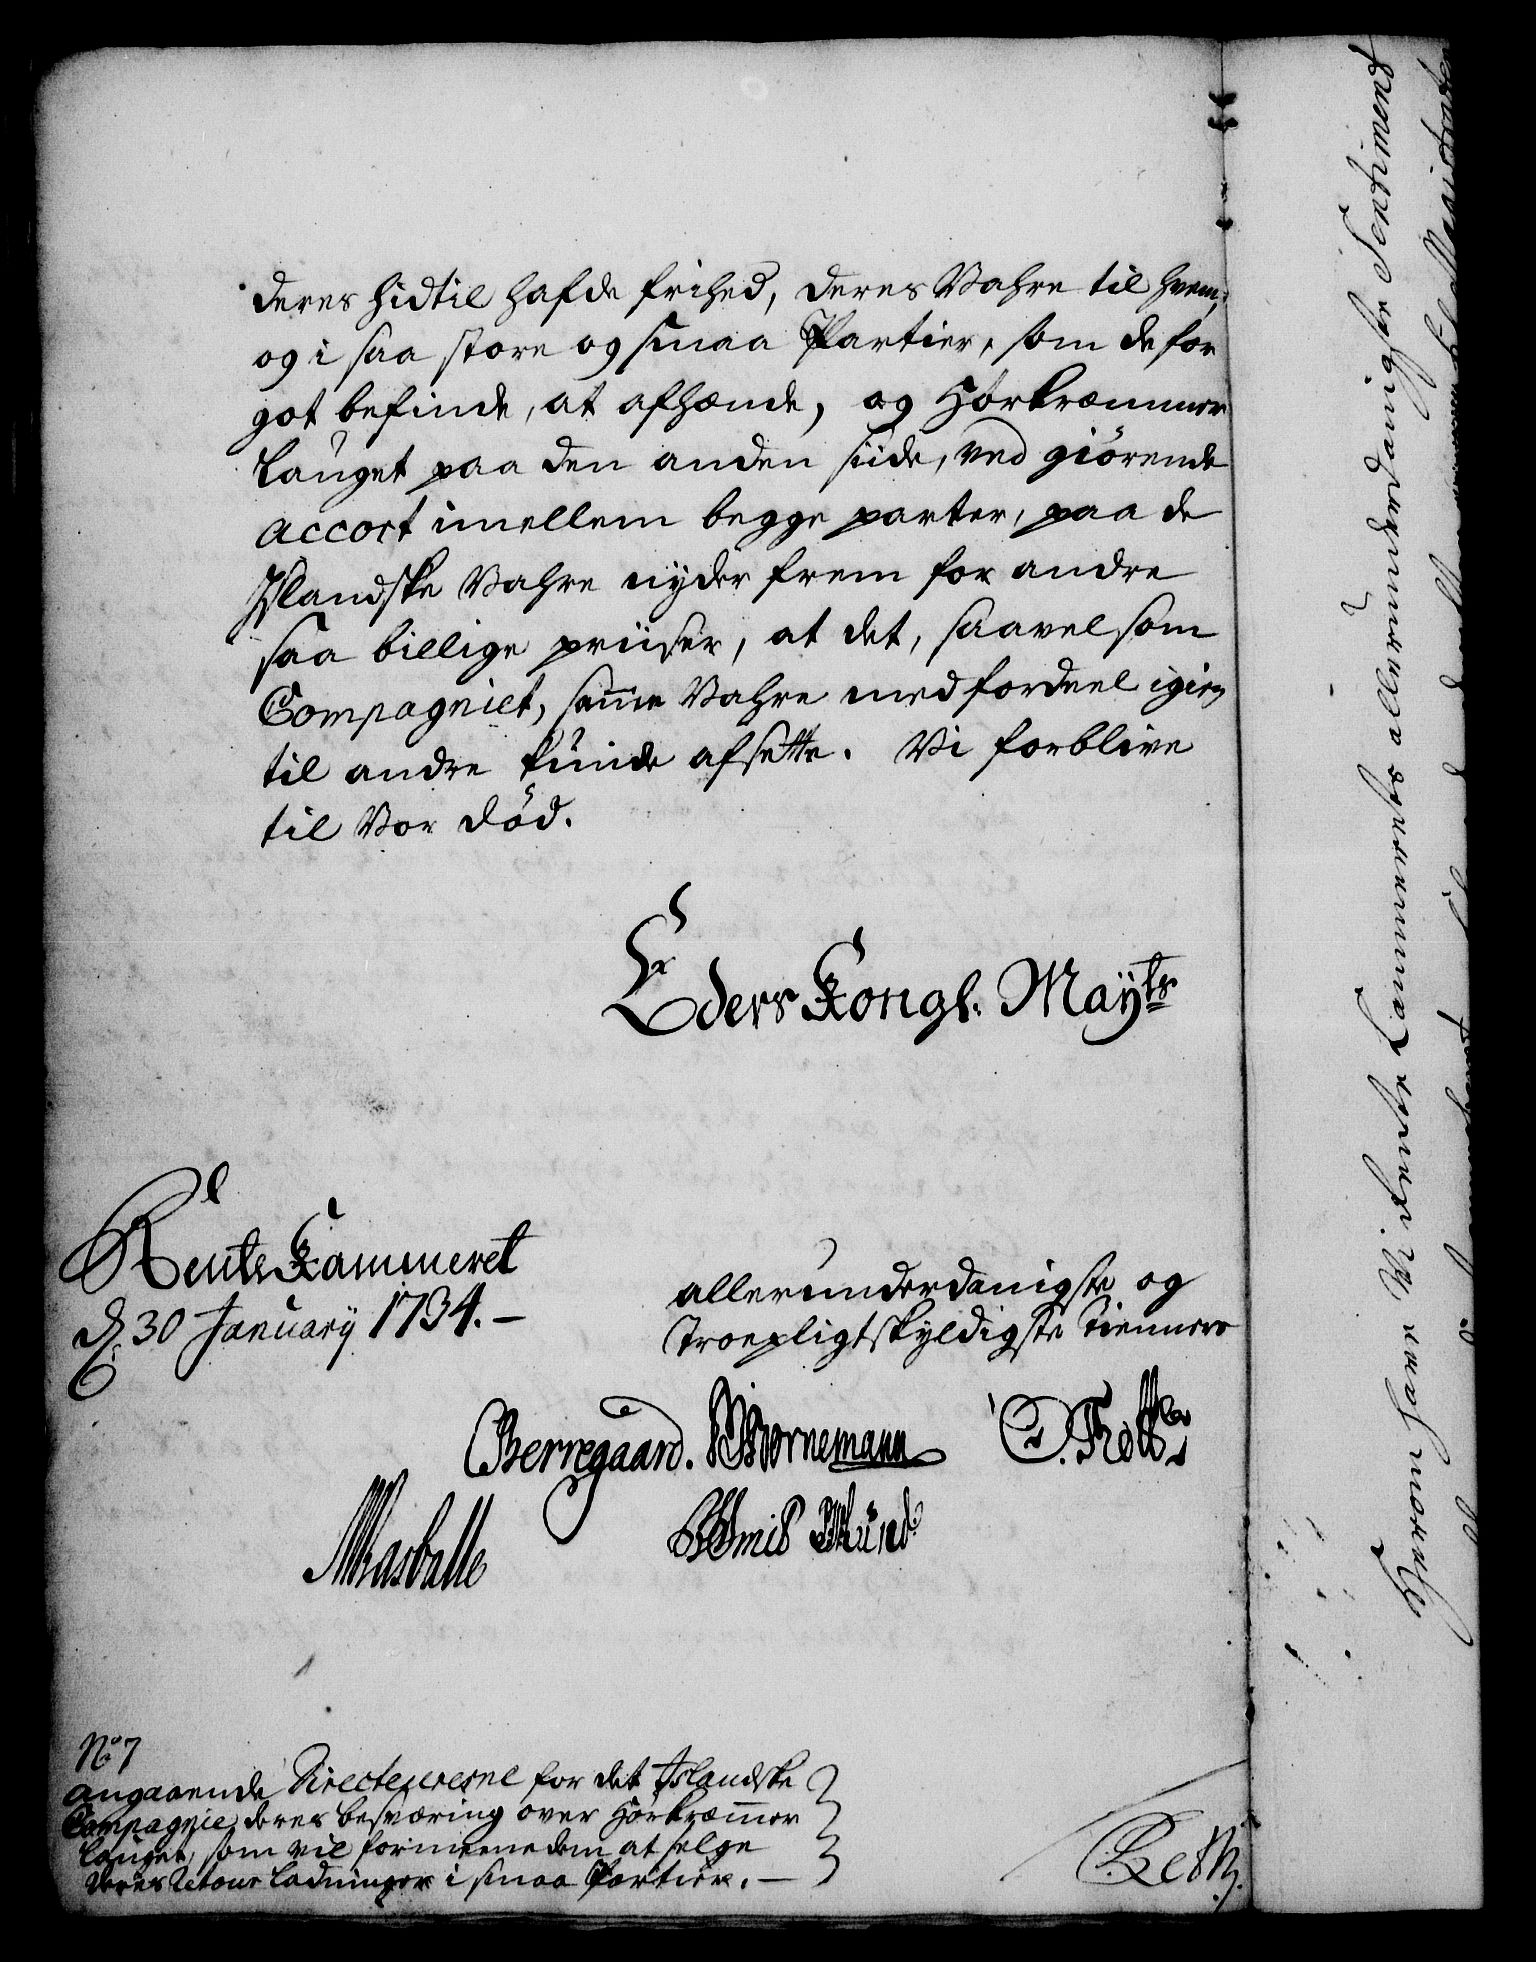 deres hidtil hafde frihed, deres Vahre til hvem,
og i saa store og smaa Partier, som de for
got befinde, at afhænde, og Hørkræmmer
Lauget paa den anden siide, ved giørende
accort imellem begge parter, paa de
Islandske Vahre nyder frem for andre
saa billige priiser, at det, saavel som
Compagniet, samme Vahre med fordeel igien
til andre kunde afsette. Vi forblive
til Vor Død.
Eders Kongl. Mayts
Rente Kammeret
d. 30 January 1734. –
allerunderdanigste og
Troepligtskyldigste tiennere
Berregaard. Bornemann
Rasballe
No 7
angaaende Directeurerne for det Islandske
Compagnie deres besværing over Hørkræmmer
Lauget, som vil formeene dem at selge
deres Retour Ladninger i smaa Partier. –
Herom haver Vi Rente Cammerets allerunderdanigste Sentiment